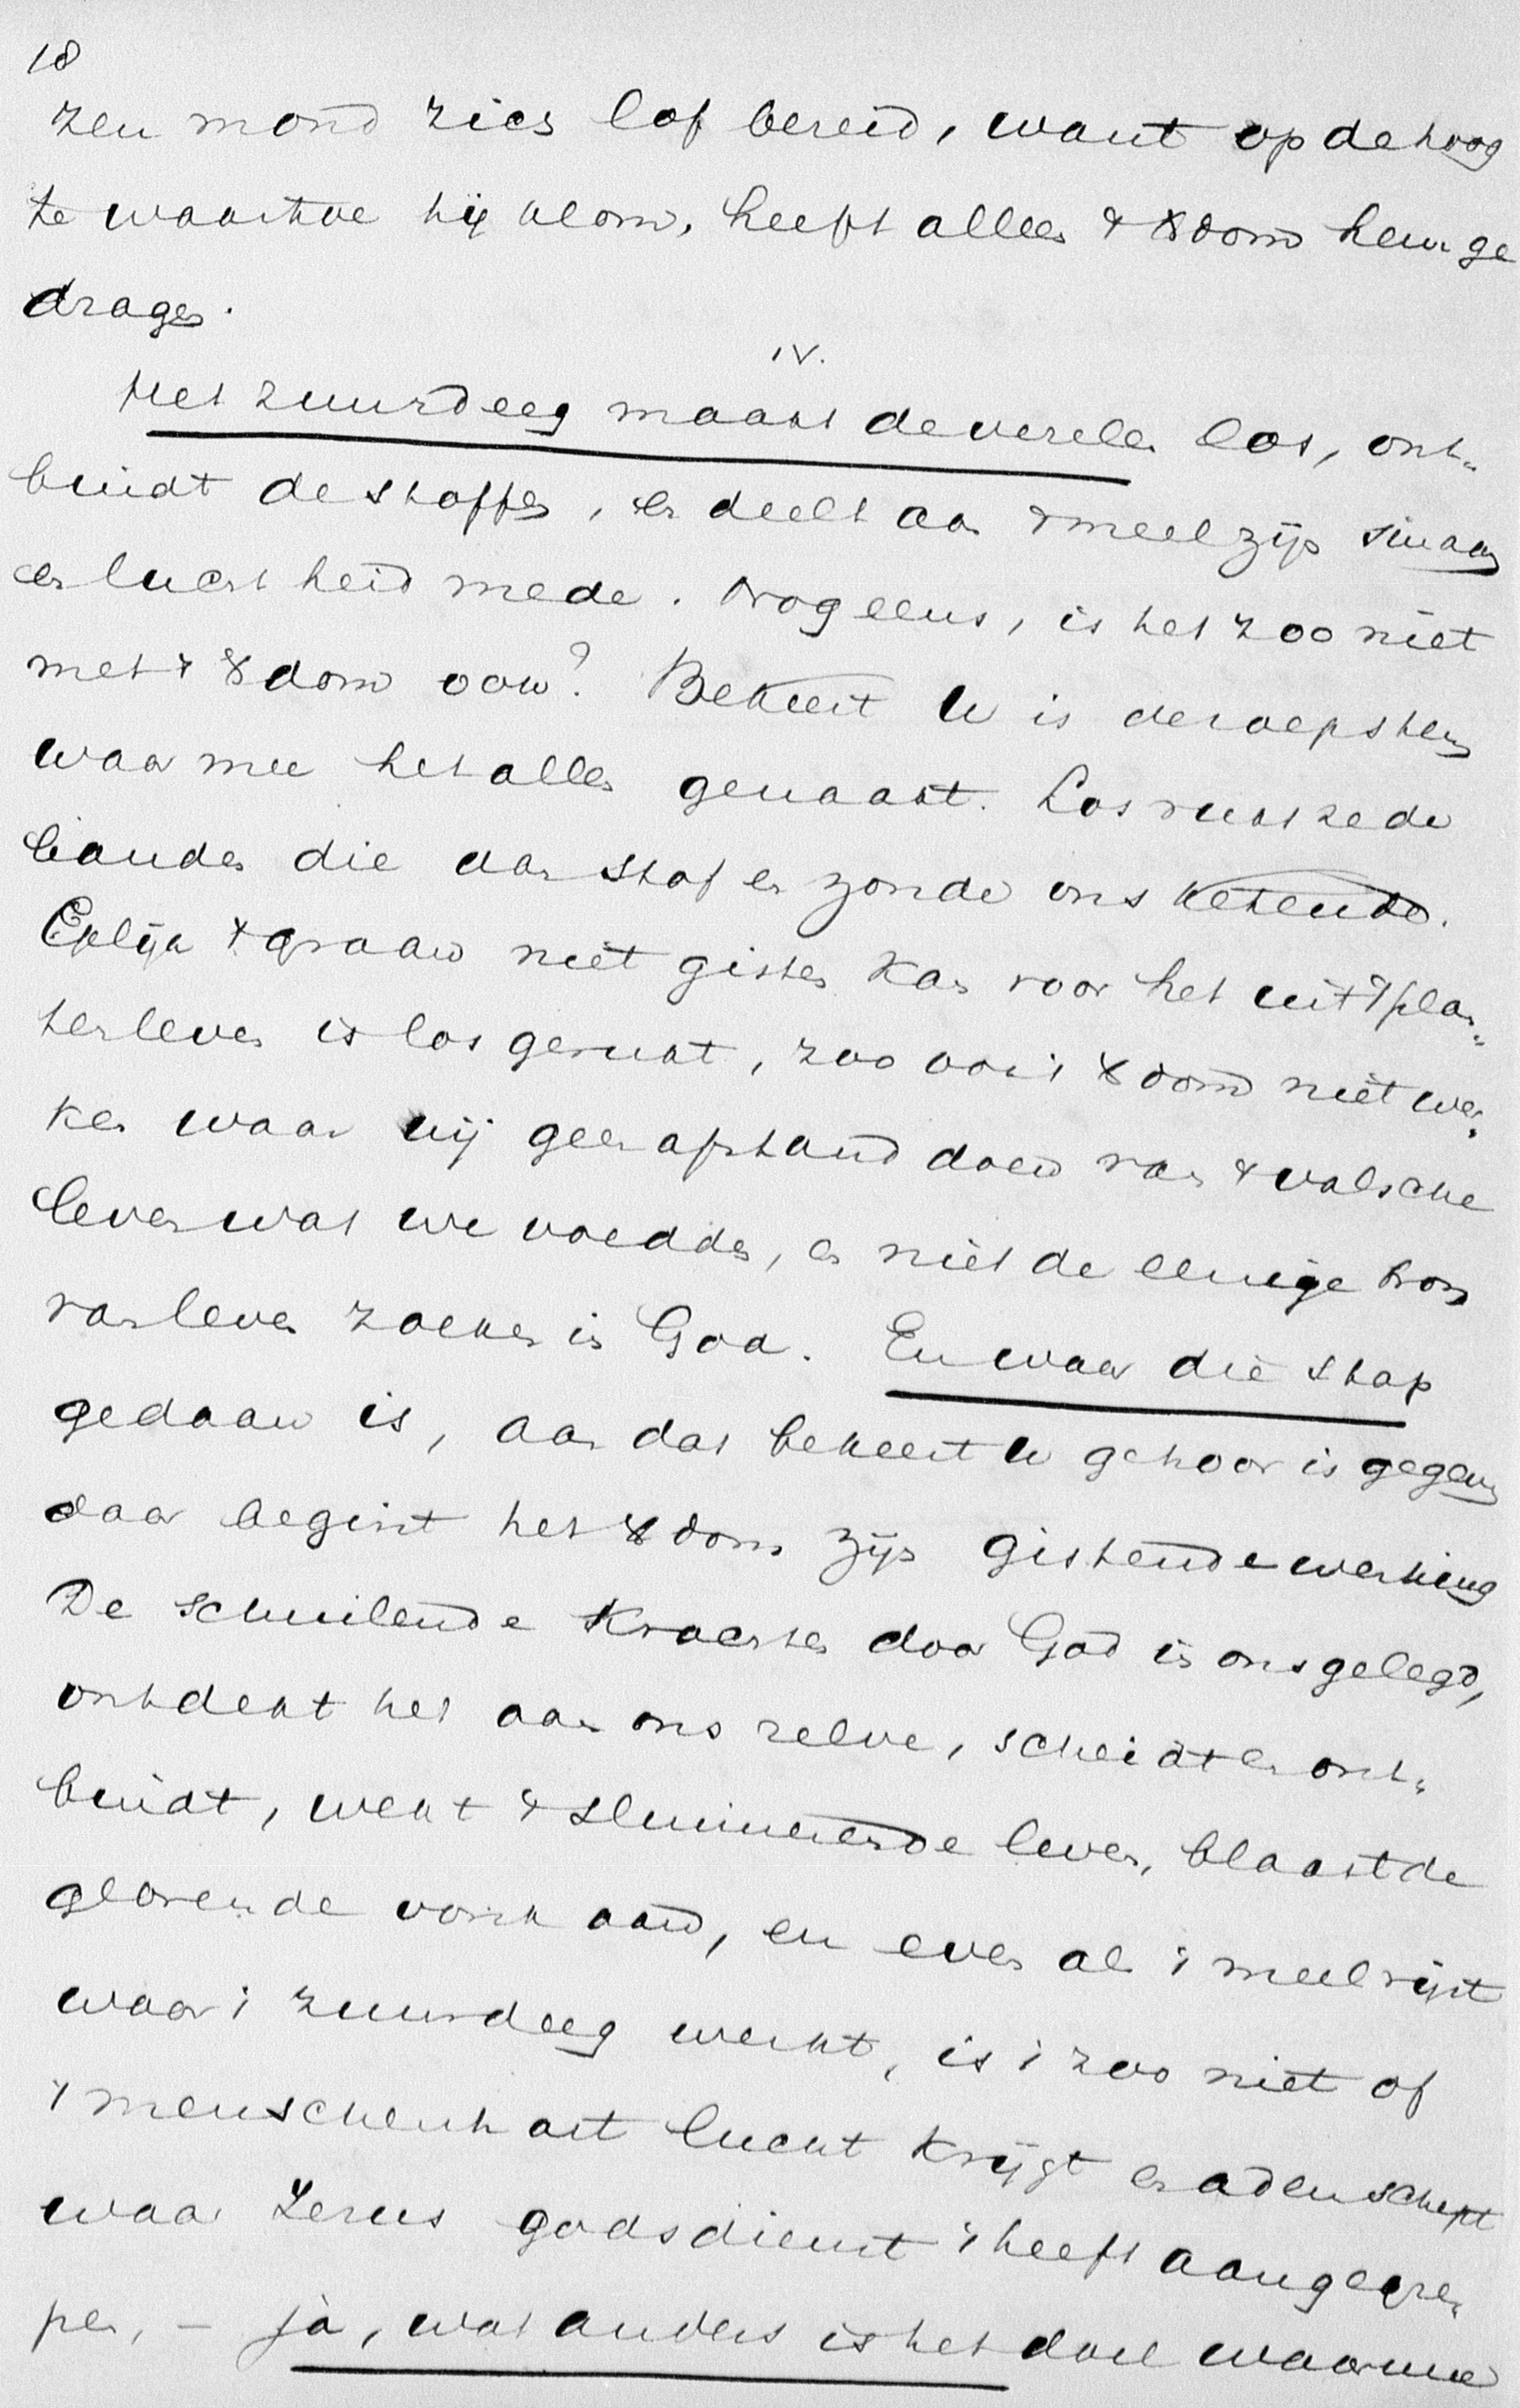 18
zen mond zich lof bereid, want op de hoog
te waartoe hij klom, heeft alleen 't Xdom hem ge
dragen.
IV.
Het zuurdeeg maakt de vezelen los, ont-
bindt de stoffen, en deelt aan 't meel zijn smaak
en luchtheid mede. Nog eens, is het zoo niet
met 't Xdom ook? Bekeert U is de roepstem
waarmee het alles genaakt. Los rukt ze de
banden die aan stof en zonde ons ketende.
Gelijk 't graan niet gisten kan voor het uit 't plan-
tenleven is losgerukt, zoo ook 't Xdom niet wer-
ken waar wij geen afstand doen van 't valsche
leven wat we voedden, en niet de eenige bron
van leven zoeken in God. En waar die stap
gedaan is, aan dat bekeert U gehoor is gegeven
daar begint het Xdom zijn gistende werking
De schuilende krachten door God in ons gelegd,
ontdekt het aan ons zelve, scheidt en ont-
bindt, wekt 't sluimerende leven, blaast de
glorende vonk aan, en even als 't meel rijst
waar 't zuurdeeg werkt, is 't zoo niet of
't menschenhart lucht krijgt en adem schept
waar Jezus godsdienst 't heeft aangegre-
pen, – ja, wat anders is het doel waarmee